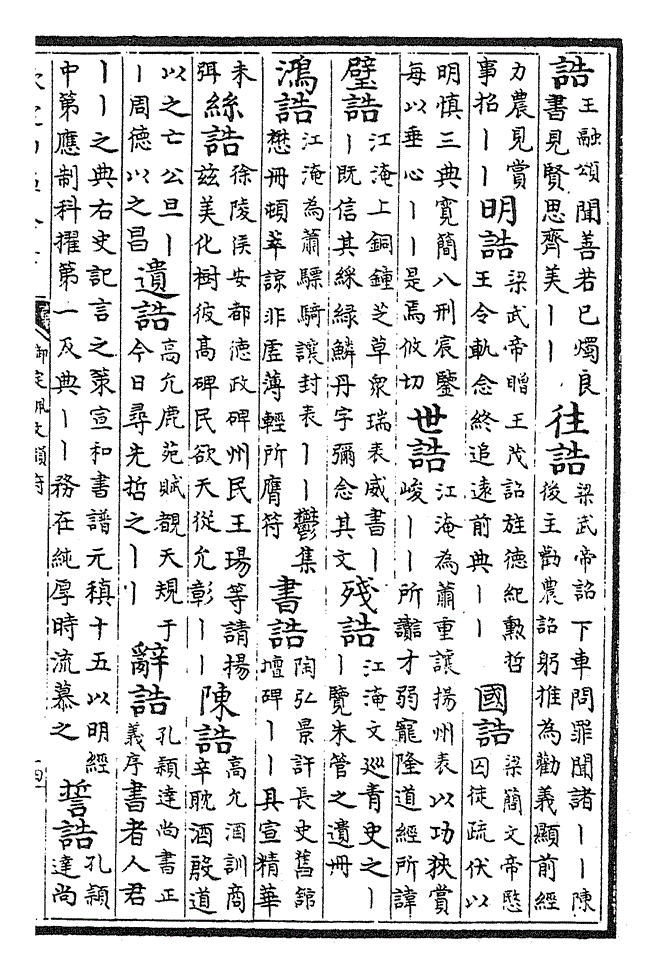 誥王融頌聞善若已燭良書見賢思齊美丨丨往誥梁武帝詔下車問罪聞諸丨丨陳後主勸農詔躬推為勸義顯前經
力農見賞事招丨丨明誥梁武帝贈王茂詔旌德紀勲哲王令軌念終追遠前典丨丨國誥梁簡文帝愍囚徒疏伏以
明慎三典寛簡八刑宸鑒每以垂心丨丨是焉攸切世誥江淹為蕭重讓揚州表以功狹賞峻丨丨所讟才弱寵隆道經所諱
璧誥江淹上銅鐘芝草衆瑞表威書丨丨既信其綵緑鱗丹字彌念其文殘誥江淹文廵青史之丨丨覽朱管之遺冊
鴻誥江淹為蕭驃騎讓封表丨丨鬱集懋冊頓萃諒非虚薄輕所膺符書誥陶弘景許長史舊舘壇碑丨丨具宣精華
未弭絲誥徐陵侯安都德政碑州民王瑒等請揚兹美化樹彼髙碑民欲天從允彰丨丨陳誥高允酒訓商辛耽酒殷道
以之亡公旦丨丨周德以之昌遺誥高允鹿苑賦覩天規于今日尋先哲之丨丨辭誥孔穎達尚書正義序書者人君
丨丨之典右史記言之策宣和書譜元稹十五以明經中第應制科擢第一及典丨丨務在純厚時流慕之誓誥孔穎達尚
御定佩文韻府